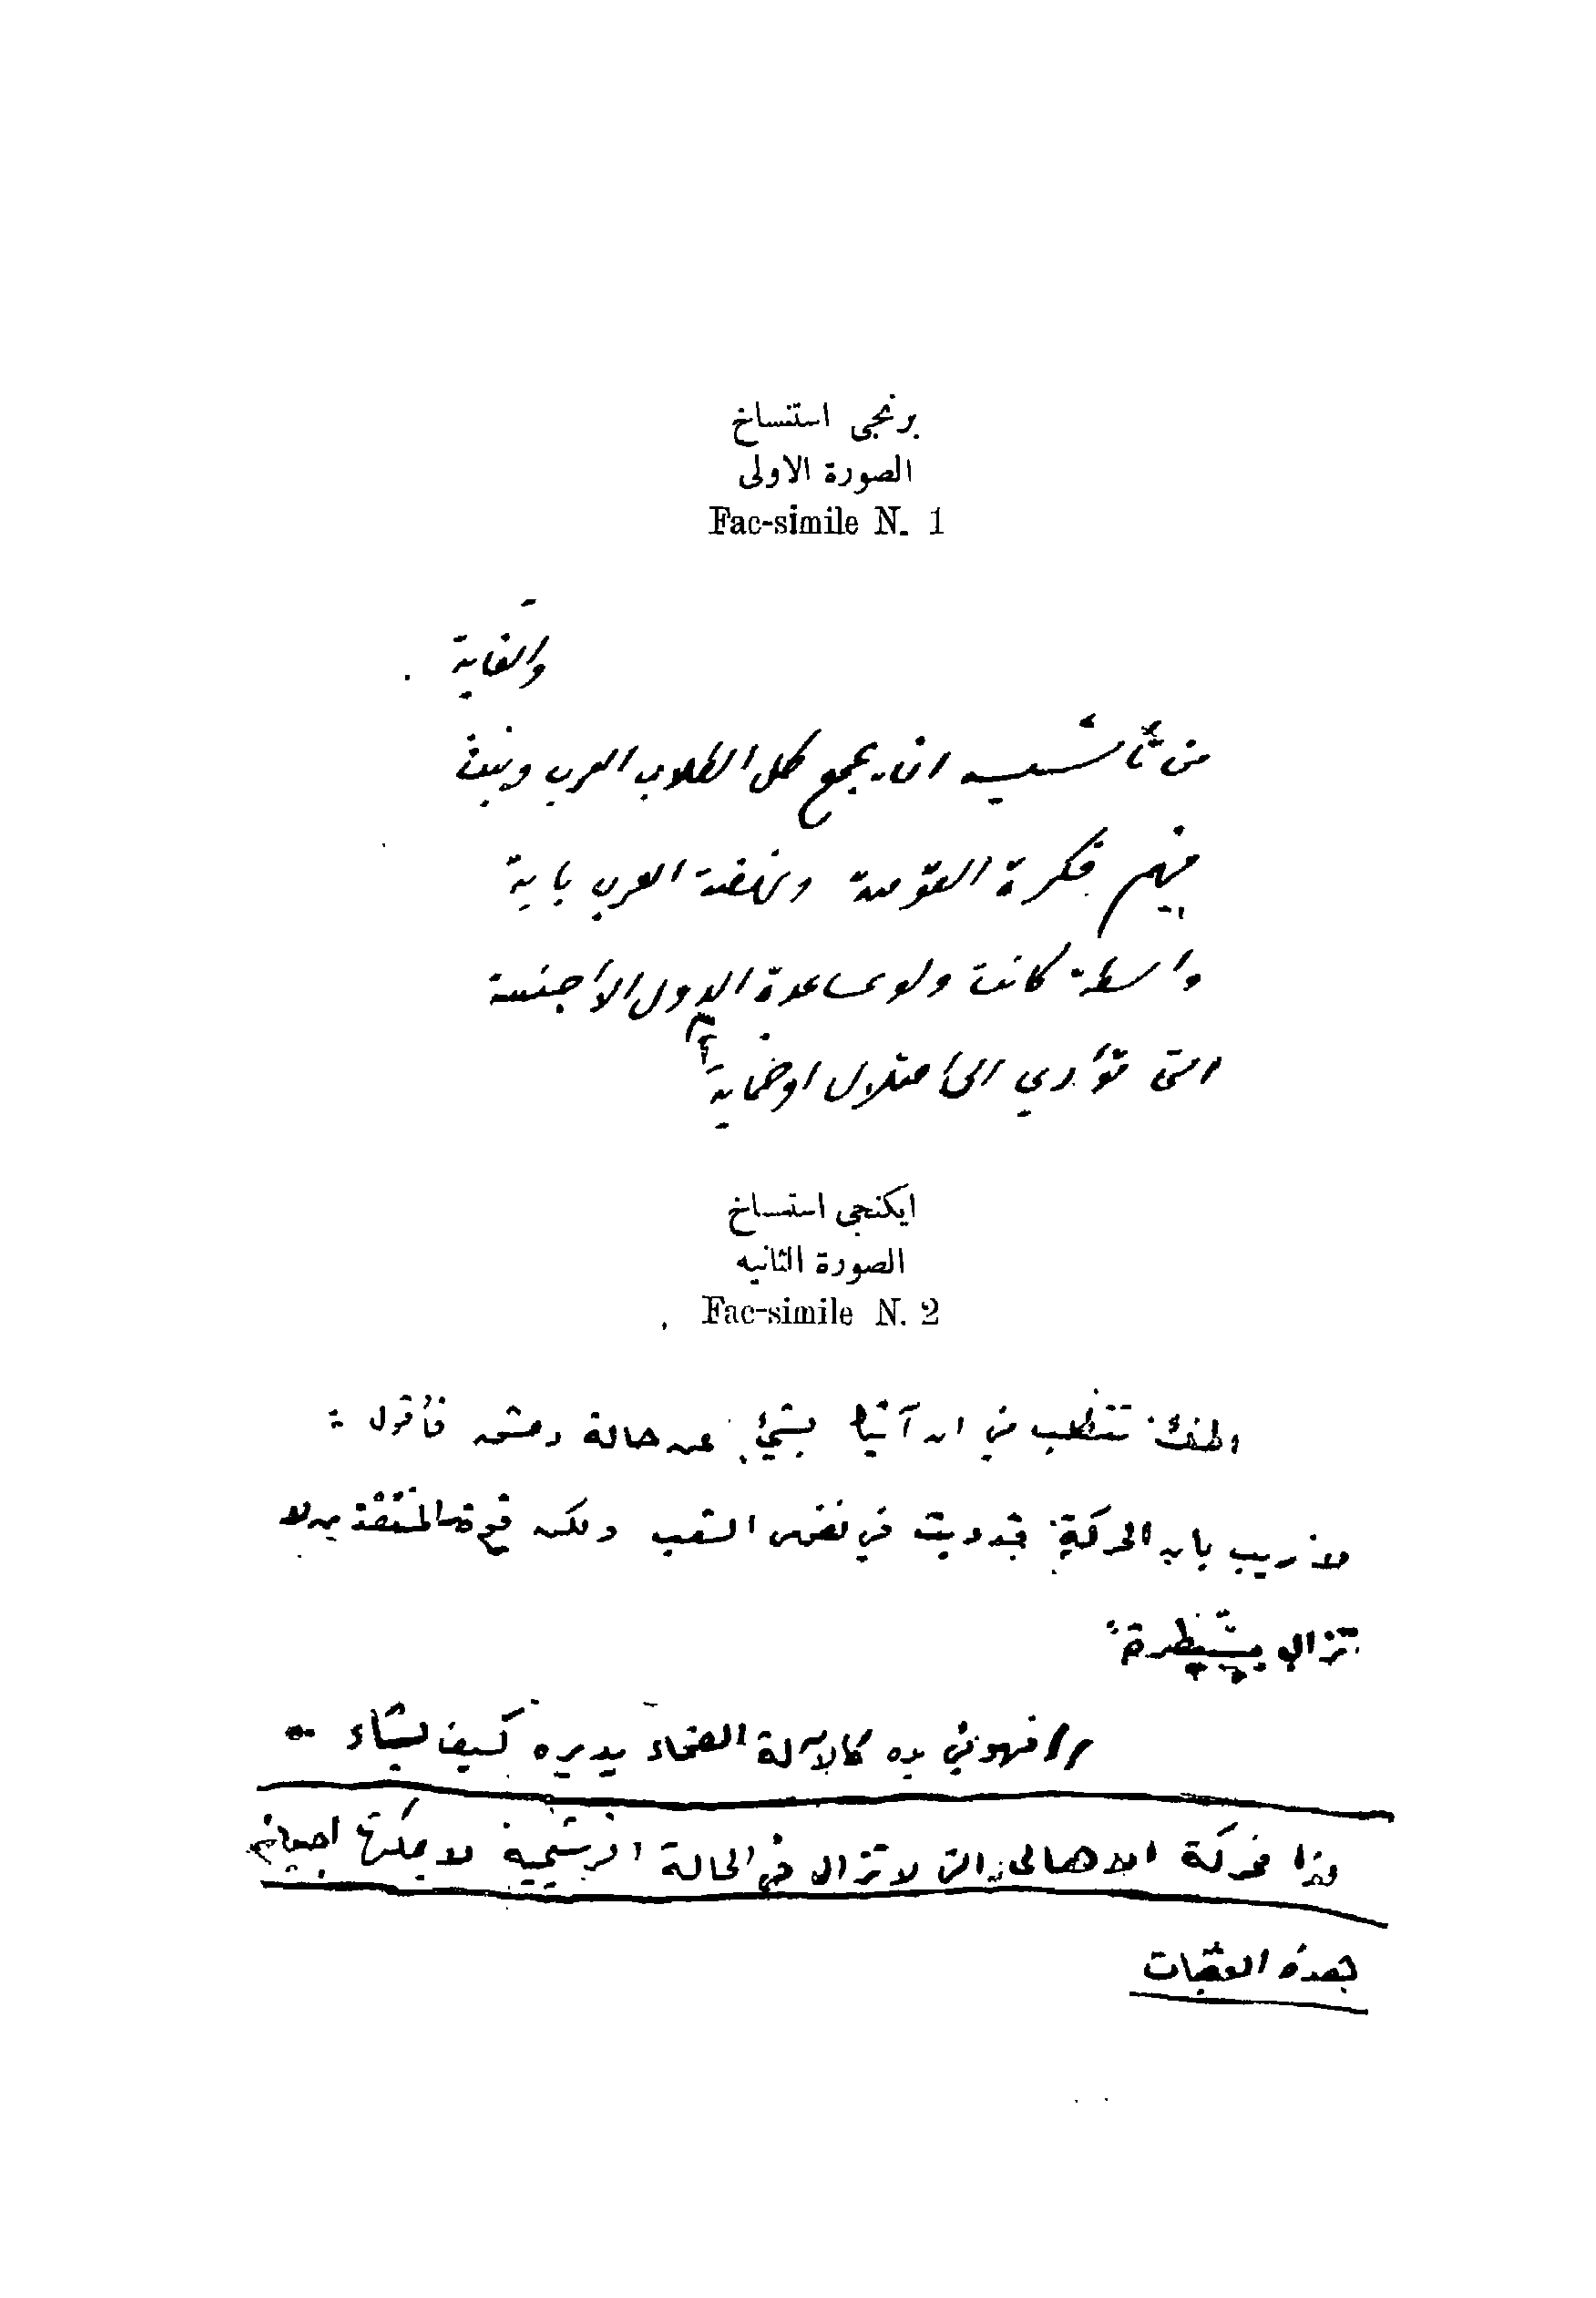 برنجى استنساخ
الصورة الاولى
Fac-simile N. 1
والغاية
من تأسيسه ان يجمع كل الطلاب العرب ويبث
فيهم فكرة القومية ونهضة العرب باية
واسطة كانت ولو بمساعدة الدول الأجنبية
التى تؤدي الى احتلال او حماية
ايكنجى استنساخ
الصورة الثانيه
Fac-simile N. 2
تتطلب من ان آتيك بشيء عن حالة دمشق فأقول :
لا ريب بان الحركة قد دبت في نفس الشعب ولكن قوة المتنفذين لا
تزال مسيطرة
فهو في يده كالآلة الصماء يديره كيف يشاء -
لذا فحركة الاهالى التى لا تزال في الحالة لا يمكنها
بهذه العقبات